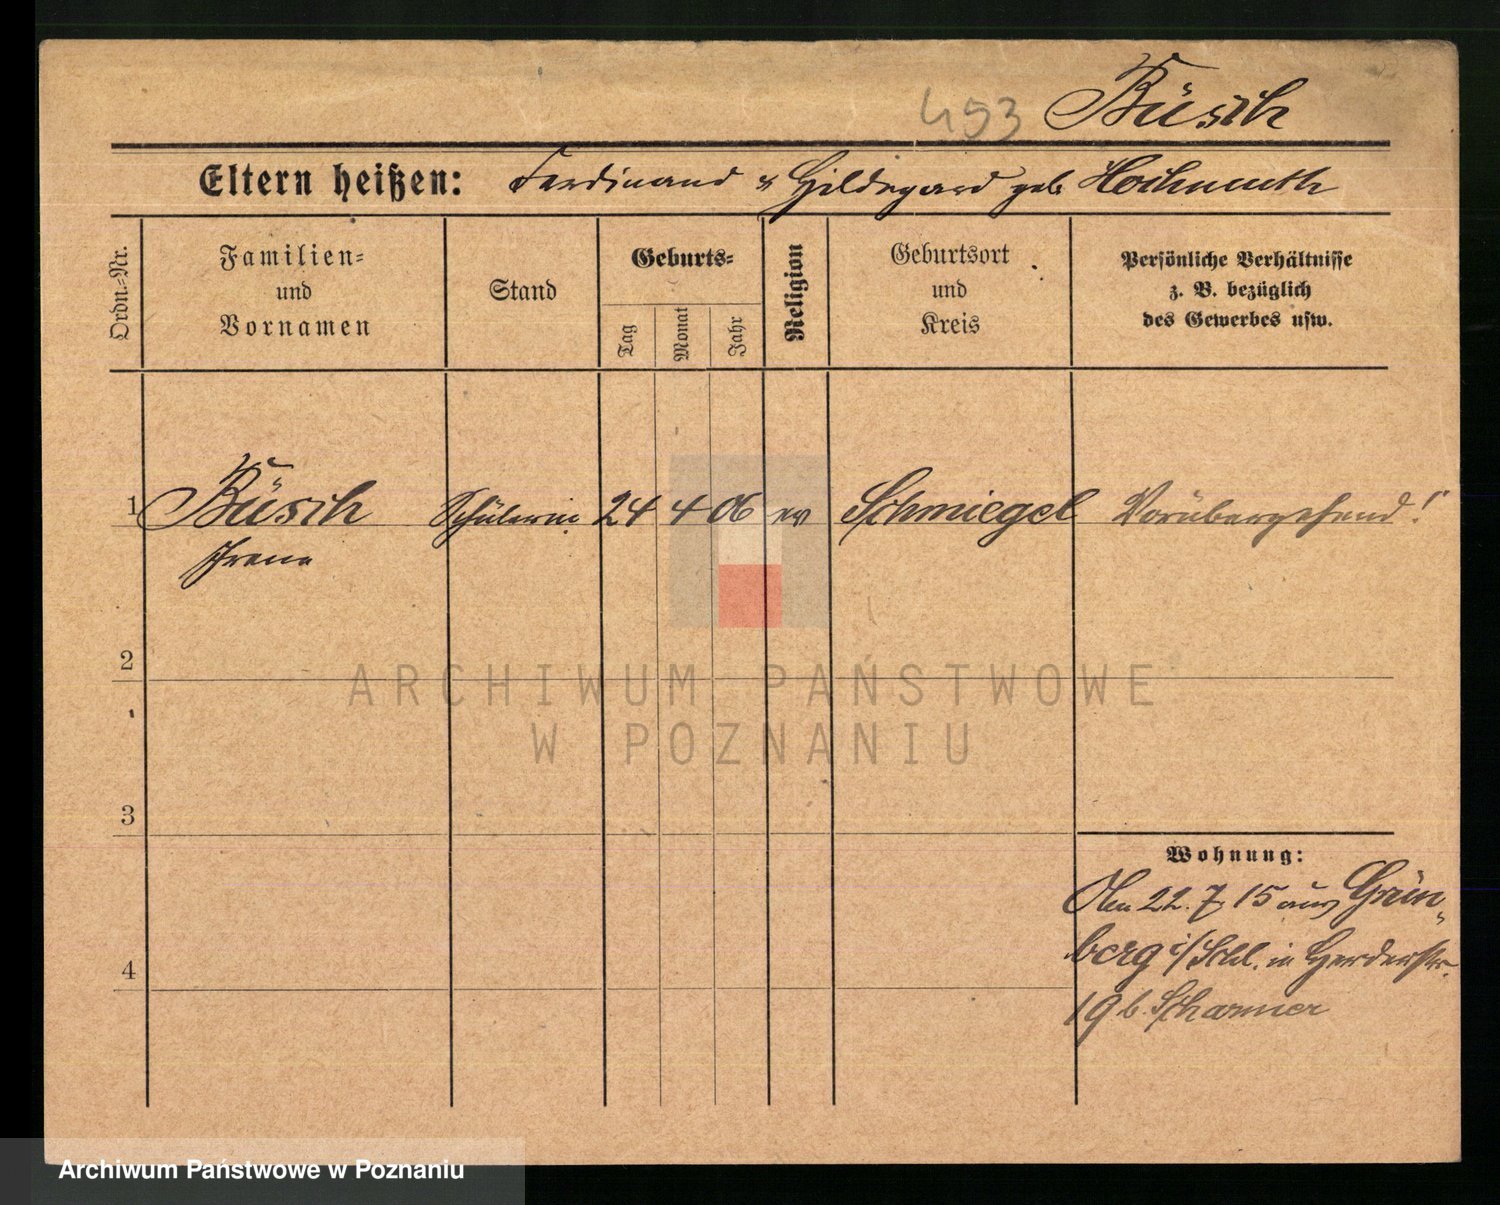 493 Büsch
Eltern heißen: Ferdinand u Hildegard geb Hochmuth
Ordn.=Nr.
Familien=
und
Vornamen
Stand
Geburts=
Tag
Monat
Jahr
Religion
Geburtsort
und
Kreis
Persönliche Verhältnisse
z. B. bezüglich
des Gewerbes usw.
1 Büsch Schülerin 24 4 06 ev Schmiegel Vorübergehend!
Irene
2
ARCHIWUM PAŃSTWOWE
W POZNANIU
3
Wohnung:
22. 7. 15 aus Grün=
berg i/Schl. in Herderstr.
19 b. Scharmer
4
Archiwum Państwowe w Poznaniu